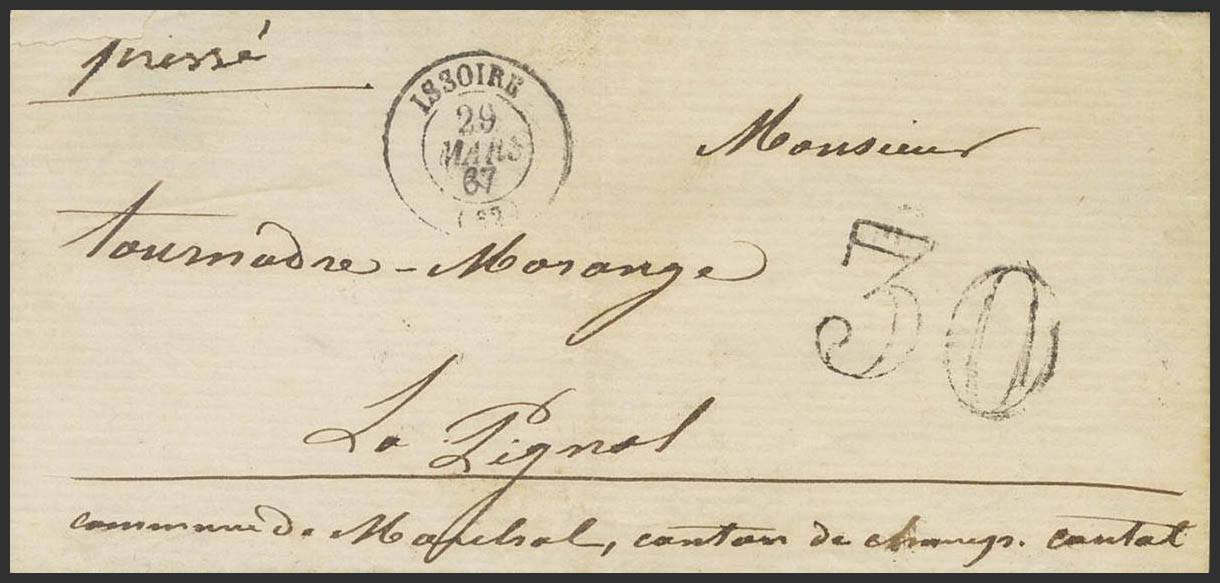 pressé
ISSOIRE
29
MARS
67
Monsieur
tournadre-Morange
30
La Pignol
commune de Marchal, canton de champs. cantal